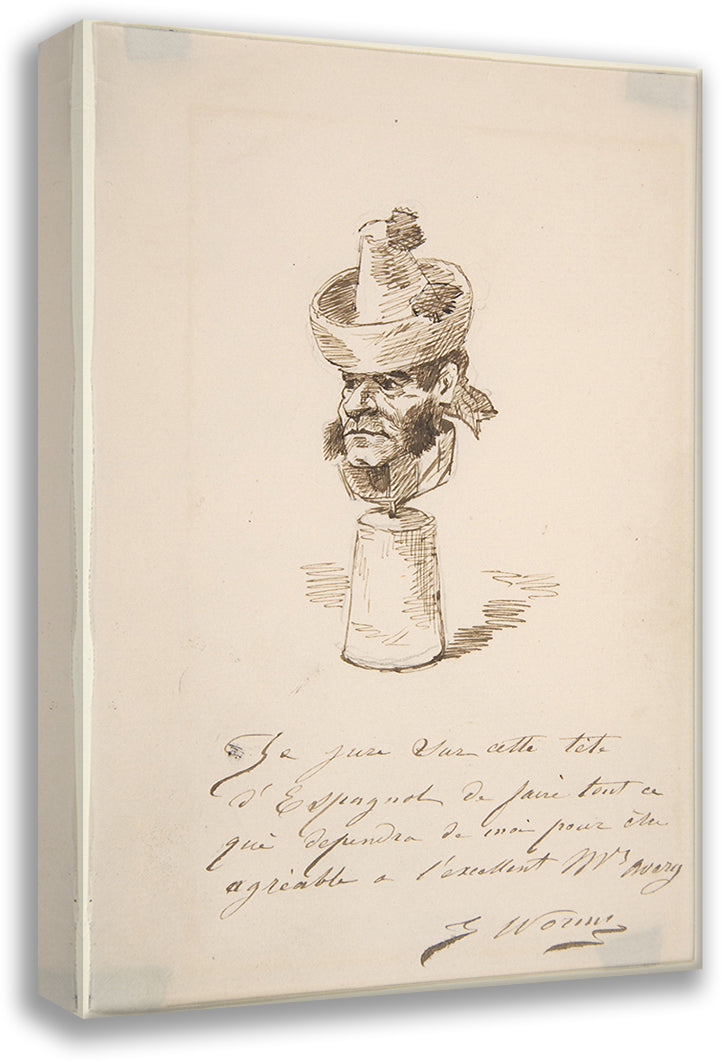 Je jure sur cette tête
d'Espagnol de faire tout ce
qui dependra de moi pour être
agréable a l'excellent Mrs Avery
J Worms